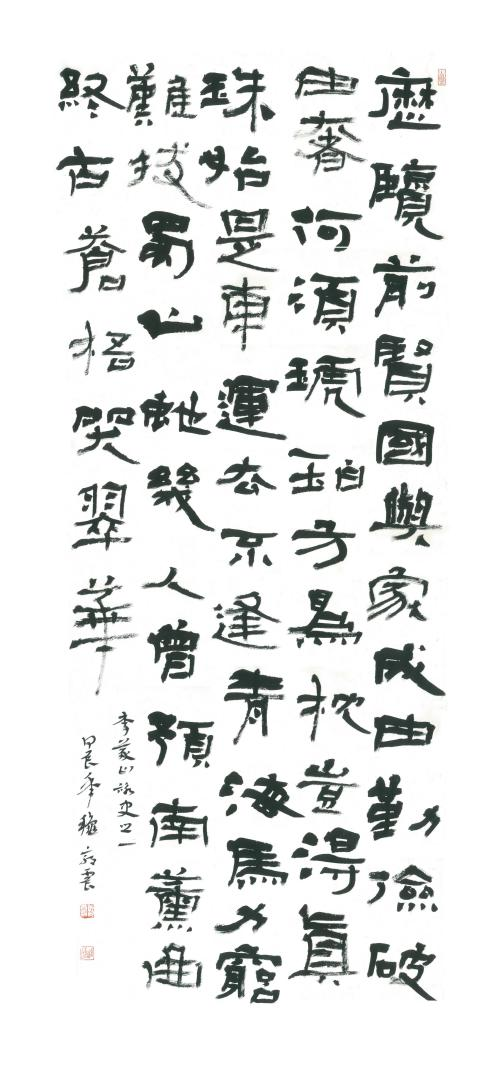 歷覽前賢國與家成由勤儉破
由奢何須琥珀方為枕豈得真
珠始是車運去不逢青海馬力窮
難拔蜀山虵幾人曾預南薰曲
終古蒼梧哭翠華
李義山詠史之一
甲辰年 雲